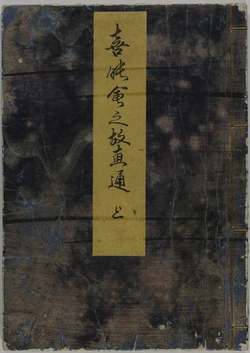 喜能會之故真通 上